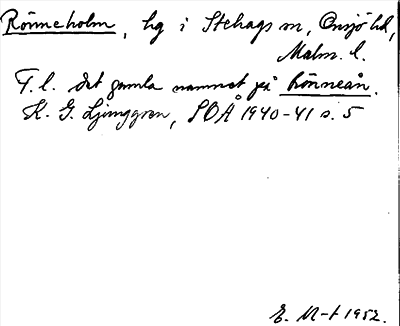 Rönneholm, hg i Stehags sn, Onsjö hd,
Malm. l.
T. l. det gamla namnet på Rönneån.
K. G. Ljunggren, SOÅ 1940-41 s. 5
E. M-t 1952.